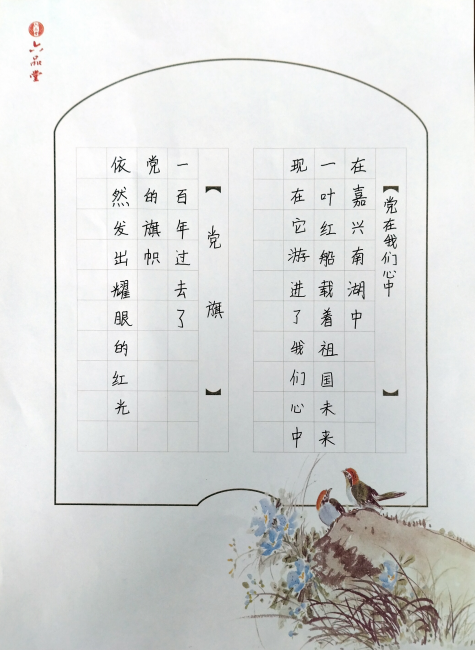 【党在我们心中】
在嘉兴南湖中
一叶红船载着祖国未来
现在它游进了我们心中
【党旗】
一百年过去了
党的旗帜
依然发出耀眼的红光
六品堂